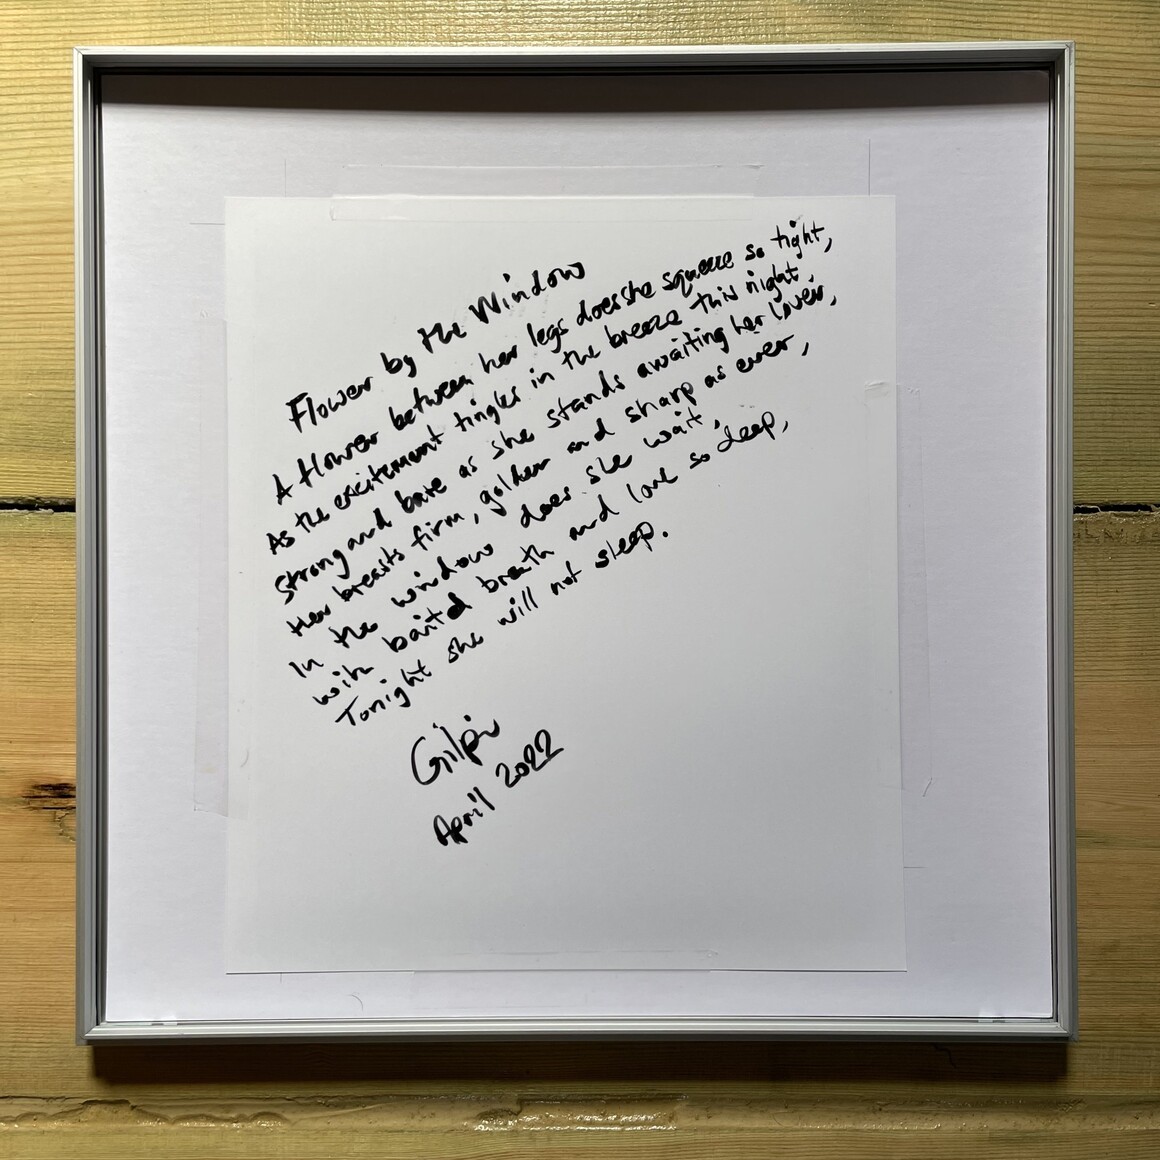 Flower by the Window
A flower between her legs does she squeeze so tight,
As the excitement tingles in the breeze this night.
Strong and bare as she stands awaiting her lover,
Her breasts firm, golden and sharp as ever,
In the window does she wait,
with baited breath and love so deep,
Tonight she will not sleep.
Gilpin
April 2022